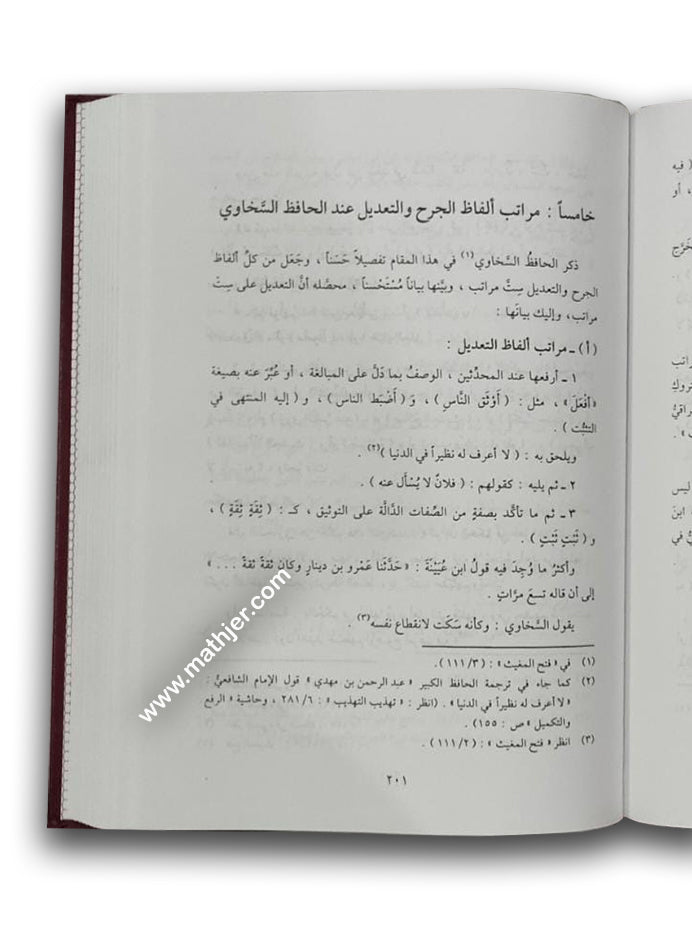 خامساً : مراتب ألفاظ الجرح والتعديل عند الحافظ السَّخاوي
ذكر الحافظُ السَّخاوي(١) في هذا المقام تفصيلاً حَسَناً ، وجَعَل من كلِّ ألفاظ
الجرح والتعديل سِتَّ مراتب ، وبيَّنها بياناً مُسْتَحْسناً ، محصَّله أنَّ التعديل على سِتِّ
مراتب، وإليك بيانَها :
(أ) ـ مراتب ألفاظ التعديل :
١ ـ أرفعها عند المحدِّثين ، الوصفُ بما دَلَّ على المبالغة ، أو عُبِّرَ عنه بصيغة
«أفْعَلَ» ، مثل : ( أَوْثَق النَّاس ) ، وَ ( أَضْبَط الناس ) ، و ( إليه المنتهى في
التثبُّت ) .
ويلحق به : ( لا أعرف له نظيراً في الدنيا )(٢) .
٢ ـ ثم يليه : كقولهم : ( فلانٌ لا يُسْأَل عنه ) .
٣ ـ ثم ما تأكَّد بصفةٍ من الصِّفات الدَّالَّة على التوثيق ، كـ : ( ثِقَةٍ ثِقَةٍ ) ،
و ( ثَبْتٍ ثَبْتٍ ) .
وأكثرُ ما وُجِدَ فيه قولُ ابن عُيَيْنَةَ : «حَدَّثَنا عَمْرو بن دينارٍ وكان ثقةً ثقةً . . . »
إلى أن قاله تسعَ مرَّاتٍ .
يقول السَّخاوي : وكأنه سَكَت لانقطاع نفسه(٣) .
(١) في «فتح المغيث» : (١١١/٣) .
(٢) كما جاء في ترجمة الحافظ الكبير «عبد الرحمن بن مهدي» قول الإمام الشافعيُّ :
«لا أعرف له نظيراً في الدنيا» . (انظر : «تهذيب التهذيب» : ٢٨١/٦ ، وحاشية «الرفع
والتكميل» ص : ١٥٥) .
(٣) انظر «فتح المغيث» : (١١١/٢) .
٢٠١
www.mathjer.com
( فيه
، أو
مراتب
ليس
ابن
في